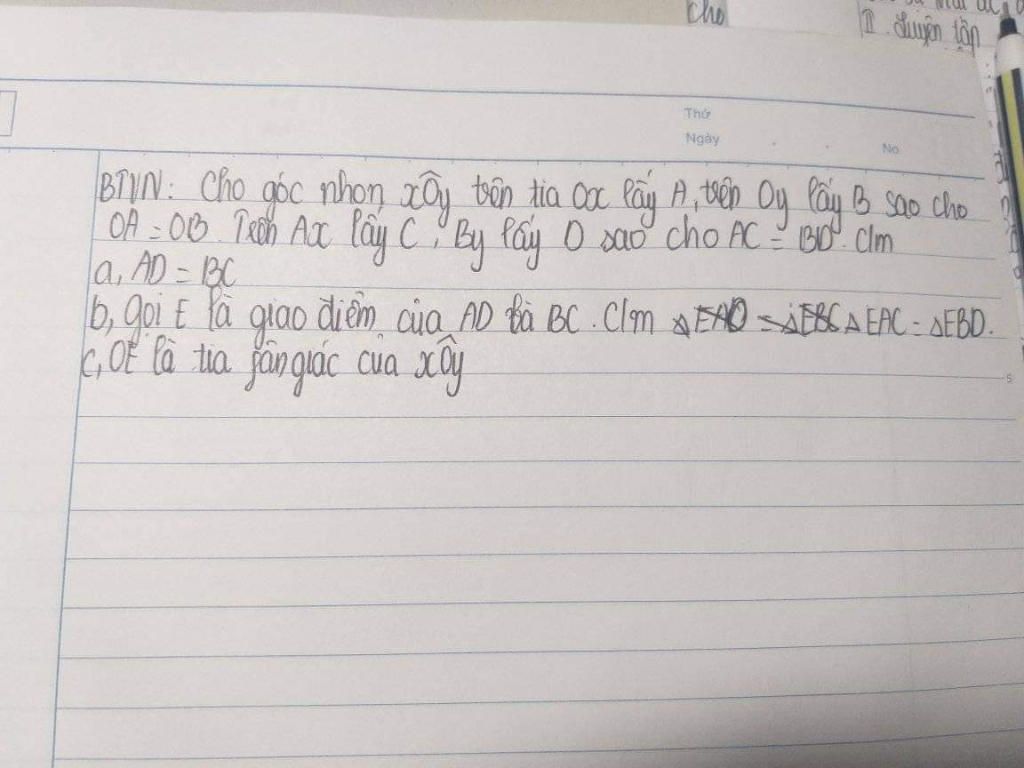 cho
II. Luyện tập
Thứ
Ngày
No
BTVN: Cho góc nhọn xÔy trên tia Ox lấy A, trên Oy lấy B sao cho
OA = OB. Trên Ax lấy C, By lấy D sao cho AC = BD. C/m
a, AD = BC
b, gọi E là giao điểm của AD và BC. C/m ΔEAC = ΔEBD.
c, OE là tia fân giác của xÔy
5